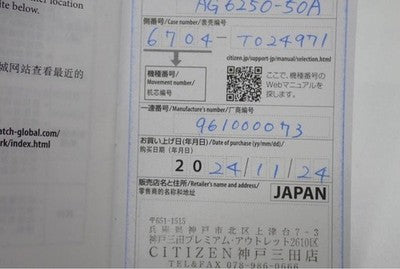 r location
ite below.
城网站查看最近的
atch-global.com/
rk/index.html
AG6250-50A
側番号/Case number/表壳编号
6704-T024971
機種番号
Movement number/
机芯编号
citizen.jp/support-jp/manual/selection.html
ここで、機種番号の
Webマニュアルを
探します。
一連番号/Manufacture's number/厂商编号
961000073
お買い上げ日(年月日)/Date of purchase (yy/mm/dd)/
购买日期 (年月日)
2024/11/24
販売店名と住所/Retailer's name and address/
零售商的名称和地址
JAPAN
〒651-1515
兵庫県神戸市北区上津台7-3
神戸三田プレミアム・アウトレット2610区
CITIZEN神戸三田店
TEL&FAX 078-986-0666